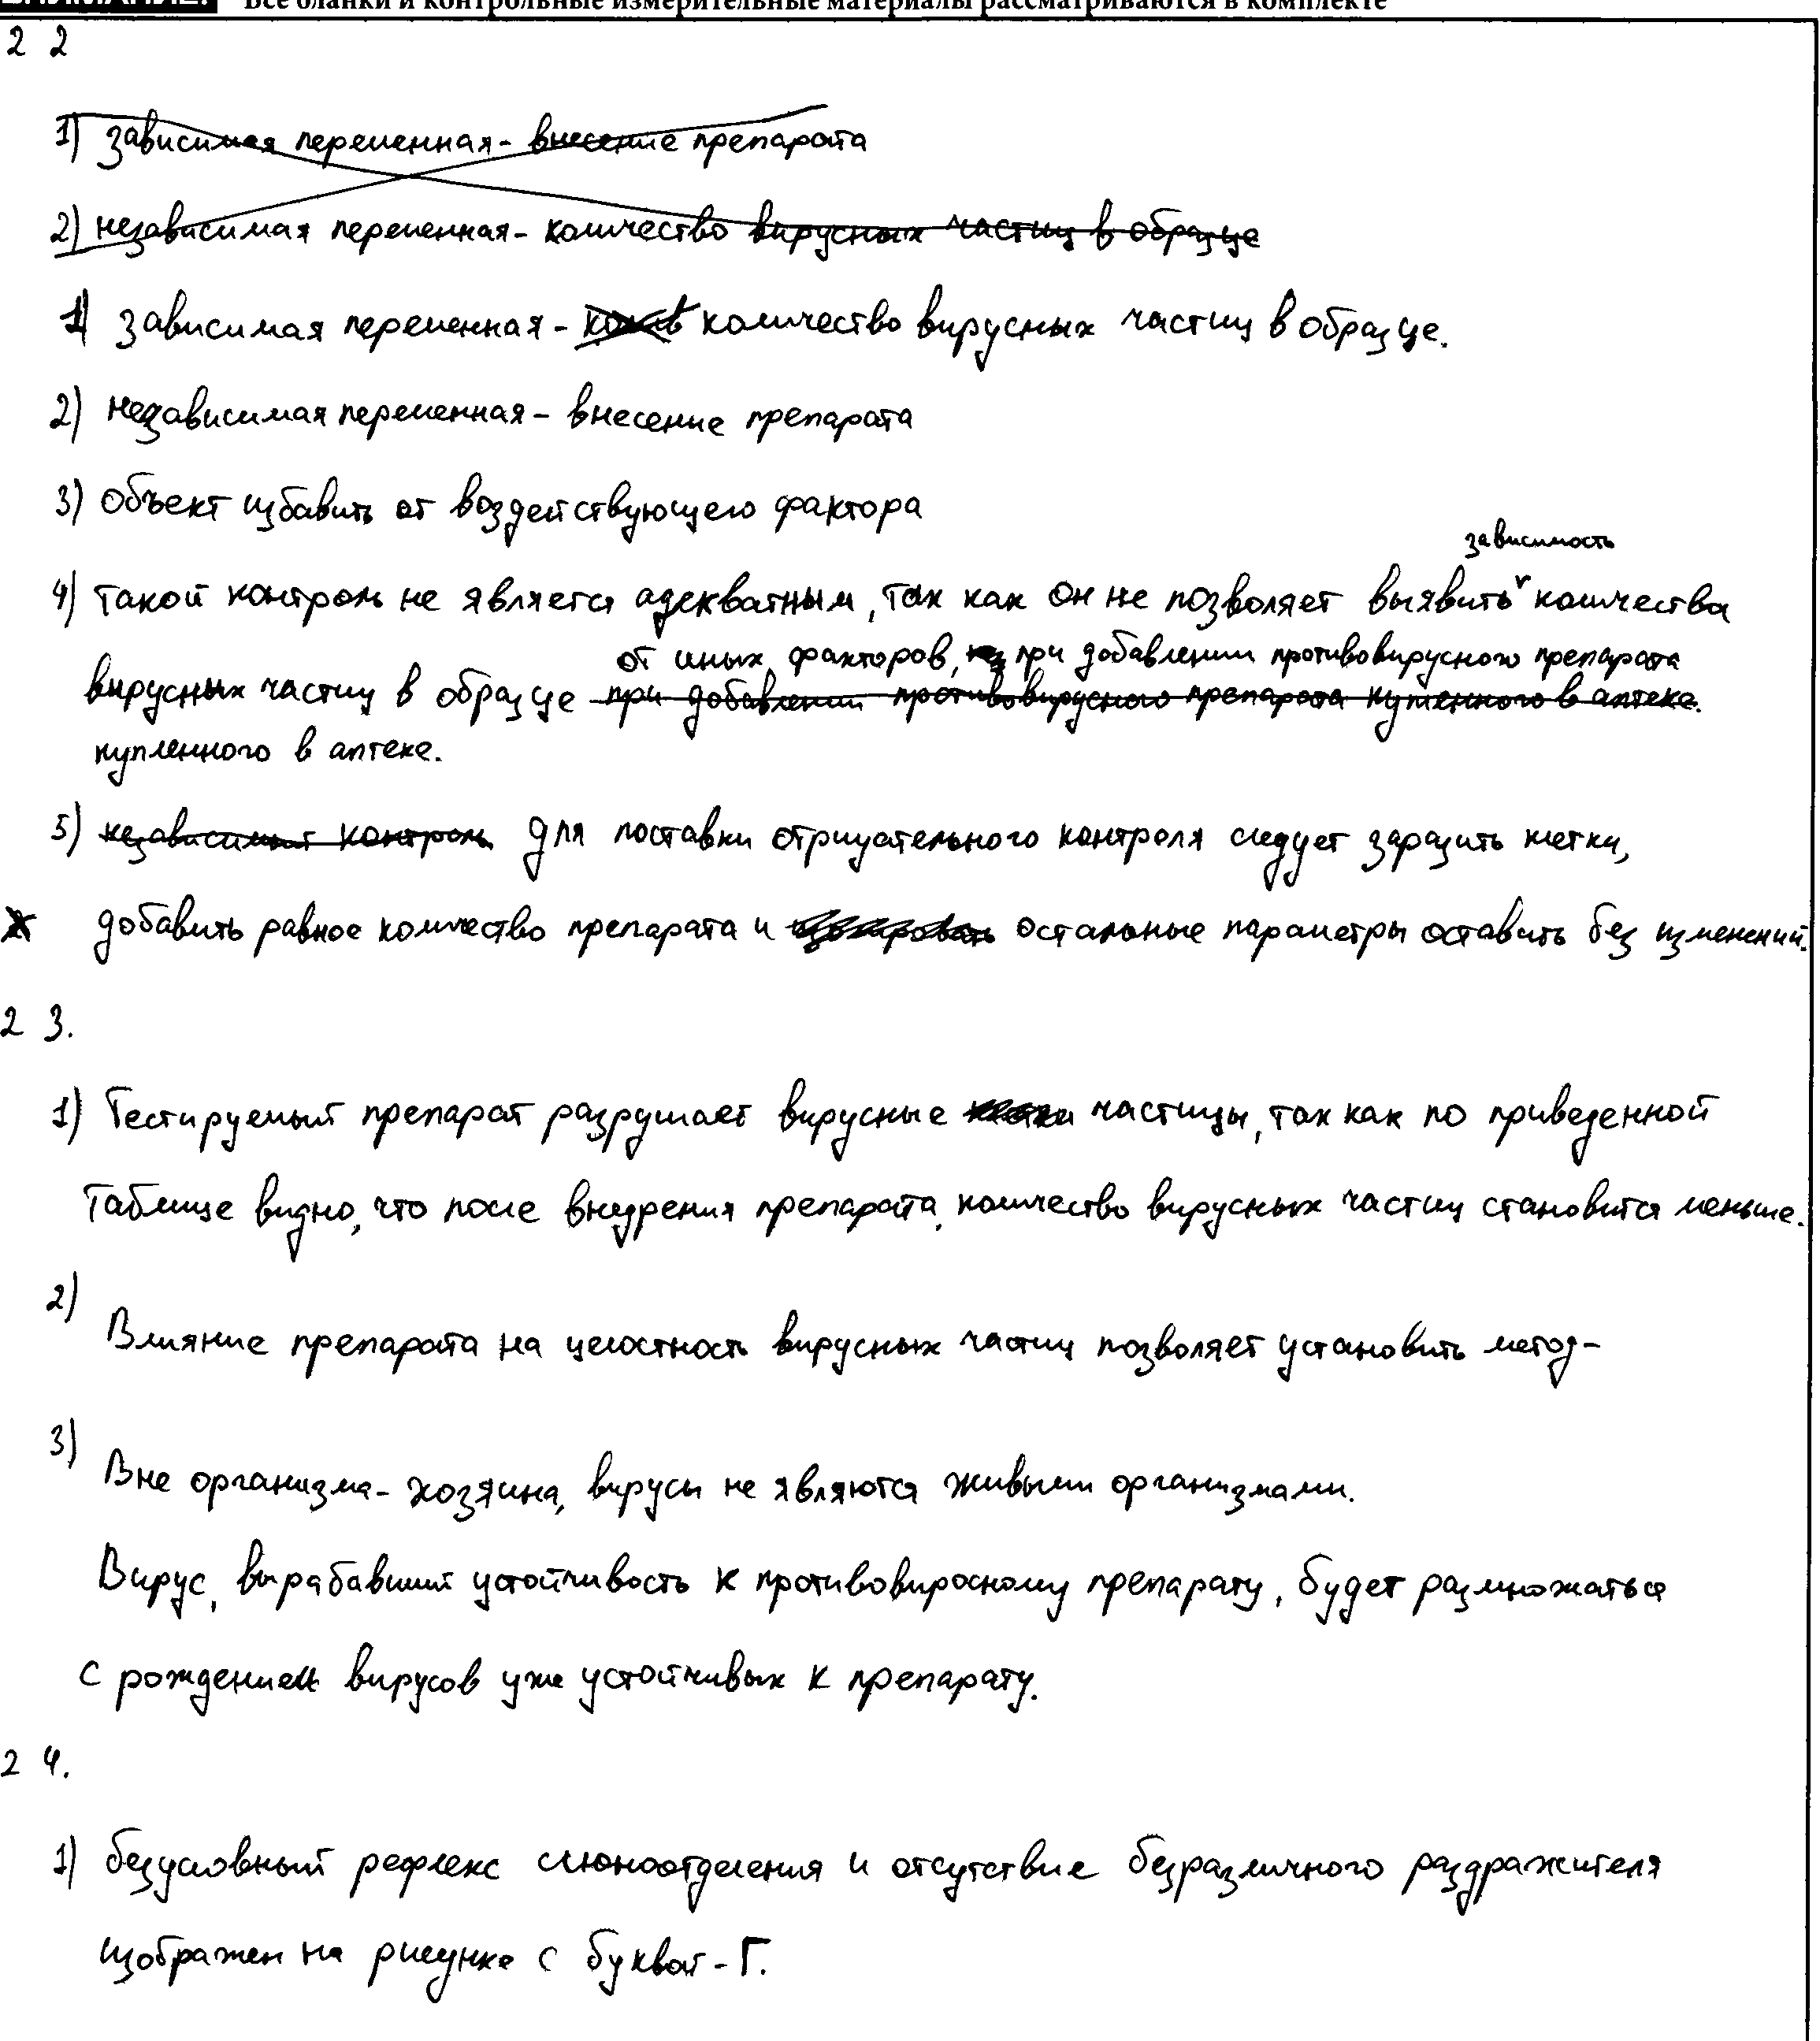 Все бланки и контрольные измерительные материалы рассматриваются в комплекте
2 2
1) зависимая переменная - внесение препарата
2) независимая переменная - количество вирусных частиц в образце
1) зависимая переменная - количество вирусных частиц в образце.
2) независимая переменная - внесение препарата
3) Объект избавить от воздействующего фактора
зависимость
4) такой контроль не является адекватным, так как он не позволяет выявить количества
от иных факторов, при добавлении противовирусного препарата
вирусных частиц в образце при добавлении противовирусного препарата купленного в аптеке.
купленного в аптеке.
5) независимый контроль для поставки отрицательного контроля следует заразить клетки,
добавить равное количество препарата и остальные параметры оставить без изменений.
2 3.
1) Тестируемый препарат разрушает вирусные частицы, так как по приведенной
таблице видно, что после внедрения препарата, количество вирусных частиц становится меньше.
2)
Влияние препарата на целостность вирусных частиц позволяет установить метод-
3)
Вне организма-хозяина, вирусы не являются живыми организмами.
Вирус, вырабавший устойчивость к противовиросному препарату, будет размножаться
с рождением вирусов уже устойчивых к препарату.
2 4.
1) безусловный рефлекс слюноотделения и отсутствие безразличного раздражителя
изображен на рисунке с буквой - Г.